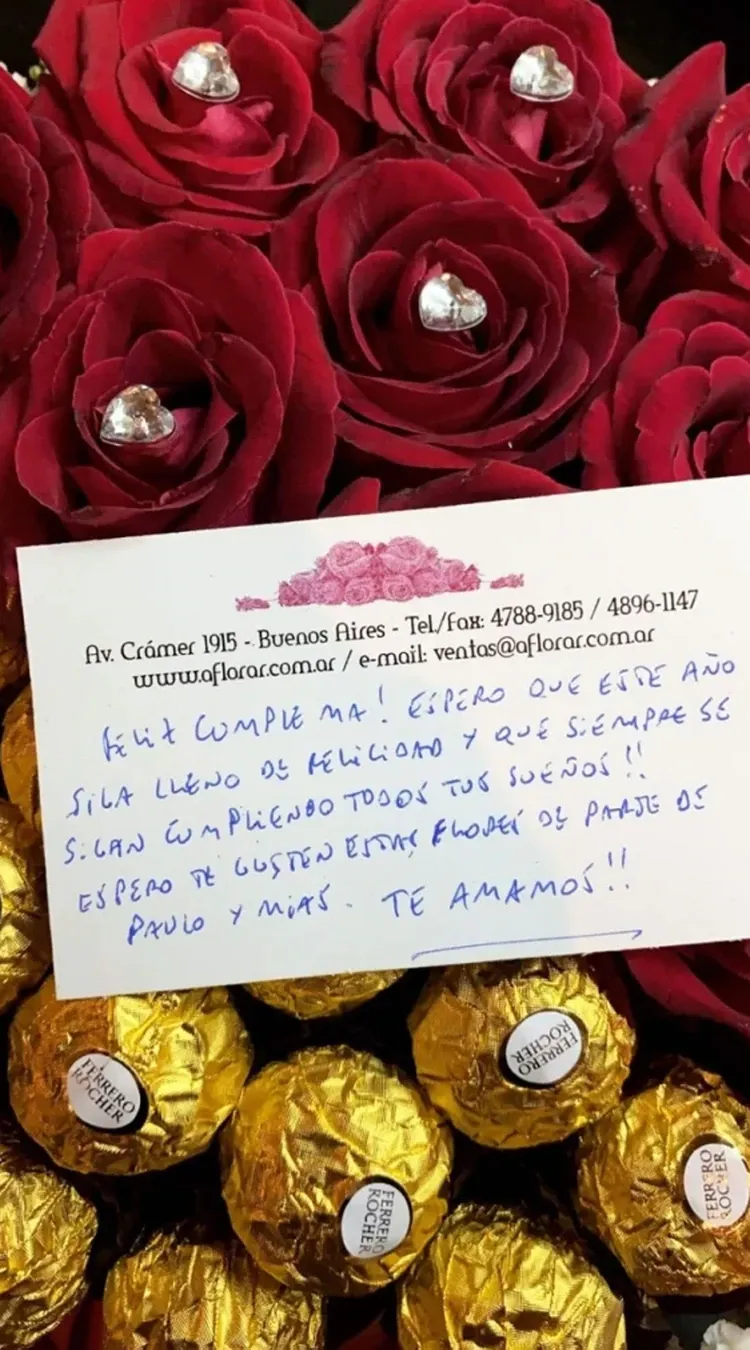 Av. Crámer 1915 - Buenos Aires - Tel/Fax: 4788-9185 / 4896-1147
www.aflorar.com.ar / e-mail: ventas@aflorar.com.ar
FELIZ CUMPLE MA! ESPERO QUE ESTE AÑO
SIGA LLENO DE FELICIDAD Y QUE SIEMPRE SE
SIGAN CUMPLIENDO TODOS TUS SUEÑOS!!
ESPERO TE GUSTEN ESTAS FLORES DE PARTE DE
PAULO Y MIAS. TE AMAMOS!!
FERRERO
ROCHER
FERRERO
ROCHER
FERRERO
ROCHER
FERRERO
ROCHER